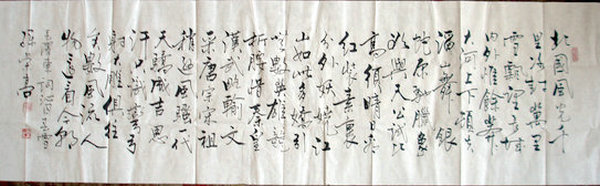 北國風光千
里冰封萬里
雪飄望長城
內外惟餘莽莽
大河上下頓失
滔滔山舞銀
蛇原馳臘象
欲與天公試比
高須晴日看
紅裝素裹
分外妖嬈江
山如此多嬌引
無數英雄競
折腰惜秦皇
漢武略輸文
采唐宗宋祖
稍遜風騷一代
天驕成吉思
汗只識彎弓
射大雕俱往
矣數風流人
物還看今朝
毛澤東詞沁園春雪